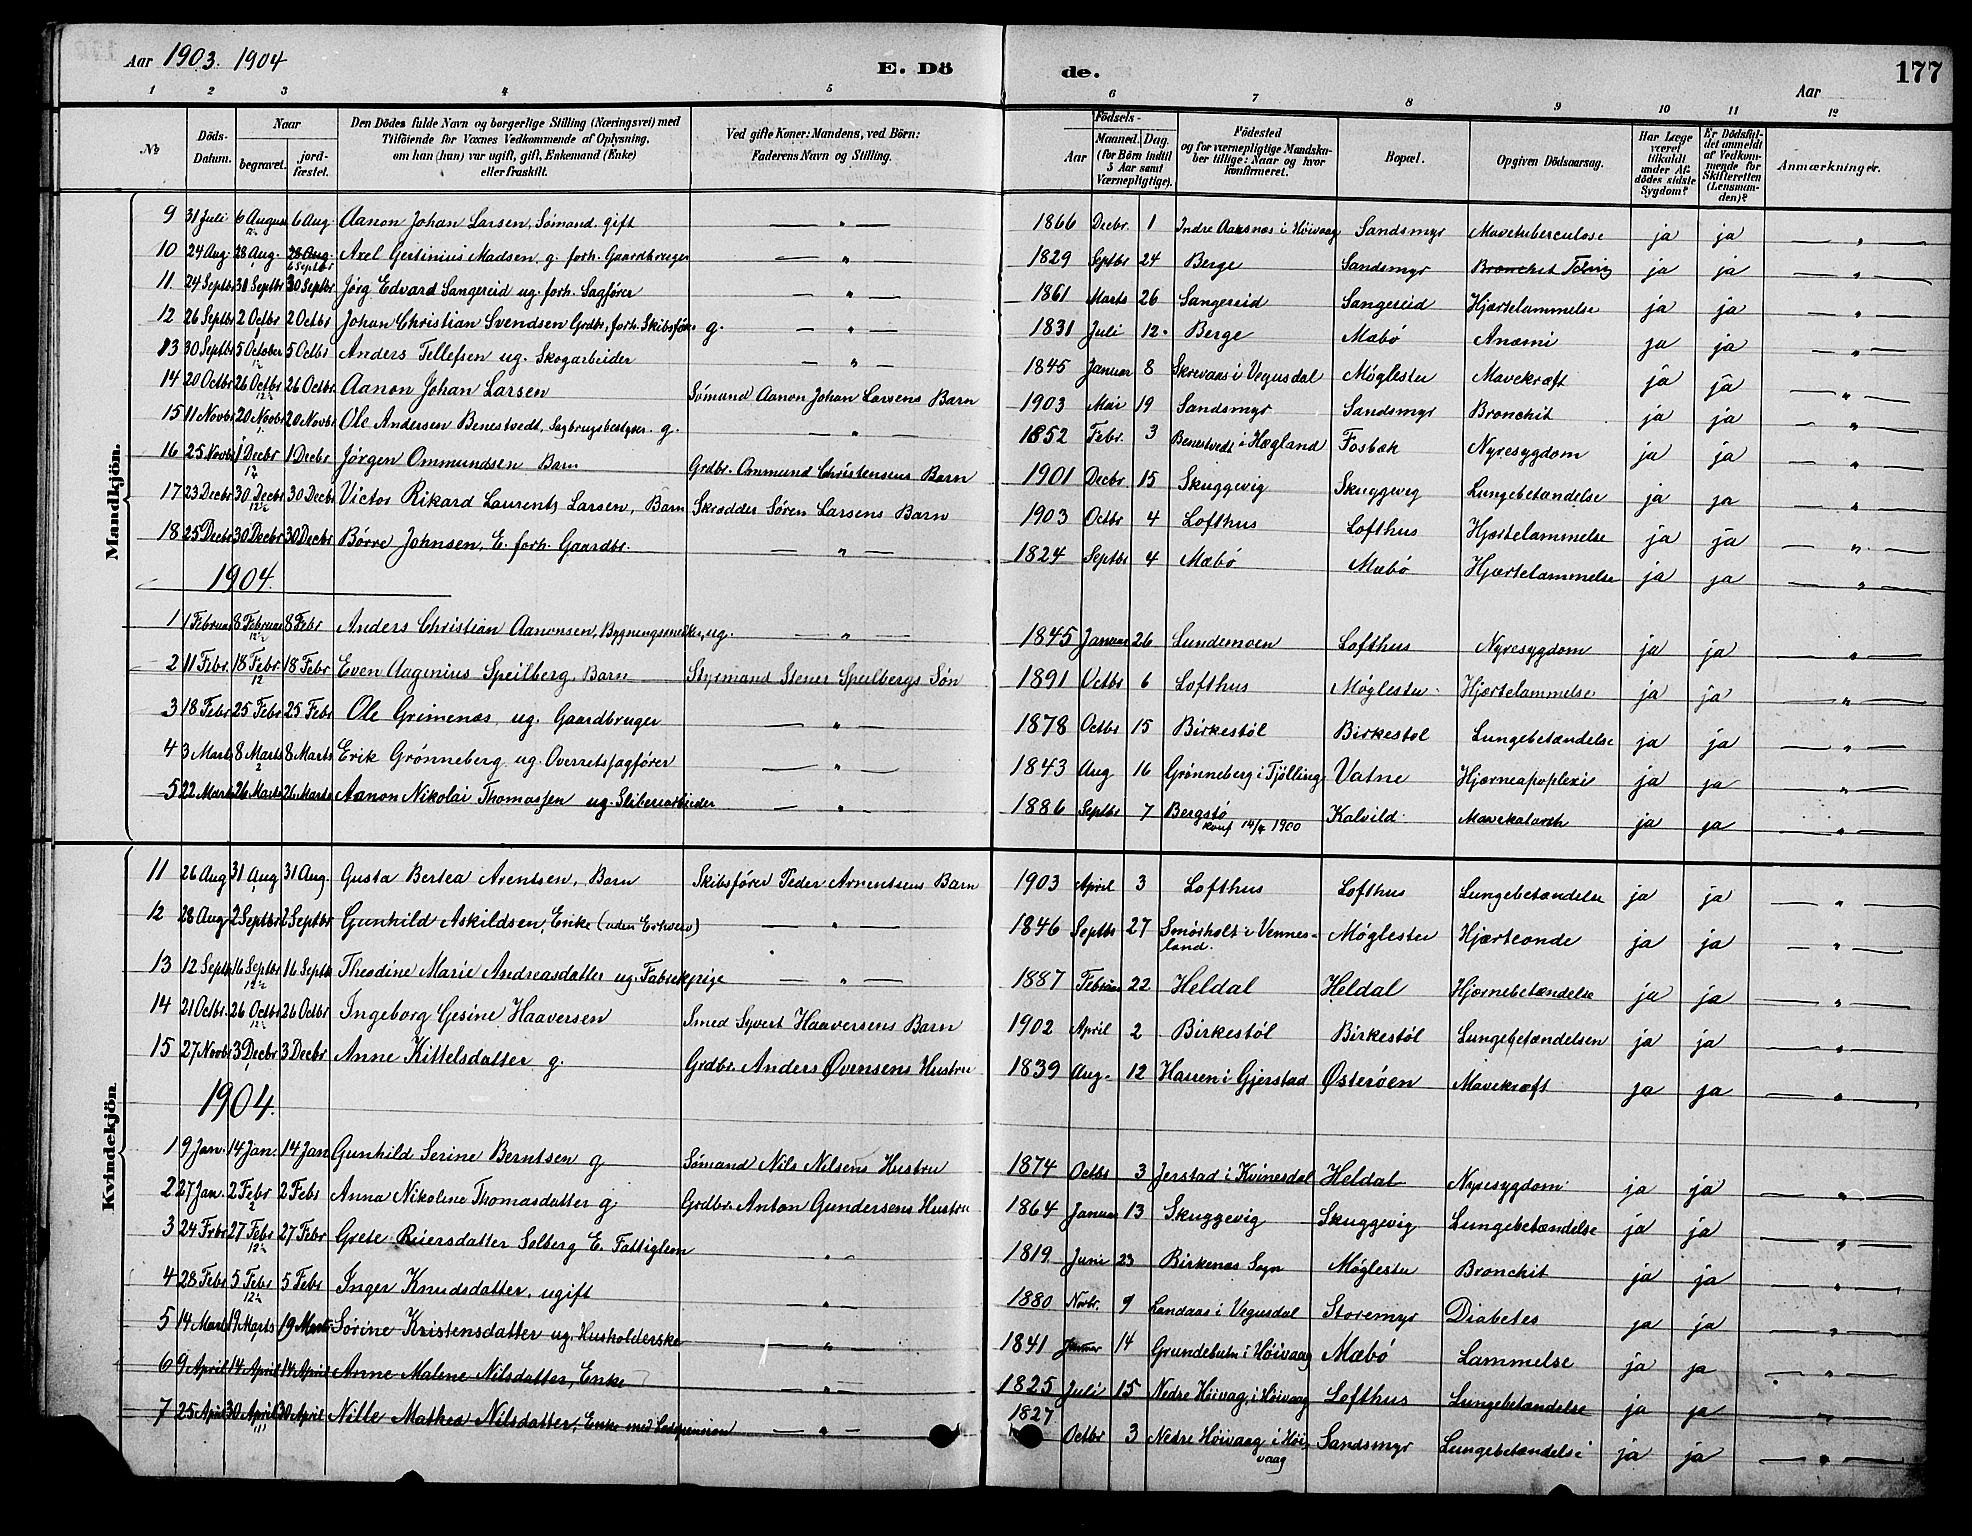 Aar 1903. 1904 E. Döde. Aar 177
1 2 3 4 5 6 7 8 9 10 11 12
№ Döds-Datum. Naar begravet. jordfæstet. Den Dödes fulde Navn og borgerlige Stilling (Næringsvei) med Tilföiende för Voxnes Vedkommende af Oplysning, om han (hun) var ugift, gift, Enkemand (Enke) eller fraskilt. Ved gifte Koner: Mandens, ved Börn: Faderens Navn og Stilling. Födsels- Aar Maaned. Dag. (for Börn indtil 5 Aar samt Værnepligtige). Födested og for værnepligtige Mandskaber tillige: Naar og hvor konfirmeret. Bopæl. Opgiven Dödsaarsag. Har Læge været tilkaldt under Afdödes sidste Sygdom? Er Dödsfaldet anmeldt af Vedkommende for Skifteretten (Lensmanden)? Anmærkninger.
Mandkjön.
9 31 Juli 6 August 12½ 6 Aug. Aanon Johan Larsen, Sømand. gift — " — 1866 Decbr. 1 Indre Aarsnes i Höivaag Sandsmyr Mavetuberculose ja ja — " —
10 24 Aug. 28 Aug. 28 Aug. 6 Septbr Axel Gertinius Madsen. g. forh. Gaardbruger — " — 1829 Septbr 24 Berge Sandsmyr Bronchit ja ja — " —
11. 24 Septbr 30 Septbr 30 Septbr Jörg Edvard Sangereid ug. forh. Sagfører — " — 1861 Marts 26 Sangereid Sangereid Hjærtelammelse ja ja — " —
12 26 Septbr 2 Octbr 2 Octbr Johan Christian Svendsen Grdbr, forh. Skibsför. g. — " — 1831 Juli 12. Berge Mæbø Anæmi ja ja — " —
13 30 Septbr 5 October 12 5 Octbr Anders Tellefsen ug. Skogarbeider — " — 1845 Januar 8 Skrevaas i Vegusdal Möglestu Mavekræft ja ja — " —
14 20 Octbr 26 Octbr 12½ 26 Octbr. Aanon Johan Larsen Sømand Aanon Johan Larsens Barn 1903 Mai 19 Sandsmyr Sandsmyr Bronchit ja ja — " —
15 11 Novbr 20 Novbr 20 Novbr Ole Andersen Benestvedt, Sagbrugsbestyrer. g. — " — 1852 Febr. 3 Benestvedt i Hægland Fosbæk Nyresygdom ja ja — " —
16 25 Novbr 1 Decbr 12 1 Decbr Jørgen Ommundsen Barn Grdbr. Ommund Christensens Barn 1901 Decbr 15 Skuggevig Skuggevig Lungebetændelse ja ja — " —
17 23 Decbr 30 Decbr 12½ 30 Decbr Victor Rikard Laurents Larsen, Barn Skrædder Søren Larsens Barn 1903 Octbr 4 Lofthus Lofthus Hjærtelammelse ja ja — " —
18 25 Decbr 30 Decbr 30 Decbr Börre Johnsen, E. forh. Gaardbr. — " — 1824 Septbr 4 Mæbø Mæbø Hjærtelammelse ja ja — " —
1904.
1 1 Februar 8 Februar 12½ 8 Febr Anders Christian Aanonsen, ug. — " — 1845 Januar 26 Lundemoen Lofthus Nyresygdom ja ja — " —
2 11 Febr. 18 Febr 12 18 Febr Even Aaginius Speilberg, Barn Styrmand Stener Speilbergs Søn 1891 Octbr 6 Lofthus Möglestu Hjærtelammelse ja ja — " —
3 18 Febr 25 Febr 25 Febr Ole Grimenæs, ug. Gaardbruger — " — 1878 Octbr 15 Birkestøl Birkestøl Lungebetændelse ja ja — " —
4 3 Marts 8 Marts 2 8 Marts Erik Grønneberg ug. Overretssagfører — " — 1843 Aug 16 Grønneberg i Tjölling Vatne Hjærneapoplexi ja ja — " —
5 22 Marts 26 Marts 26 Marts Aanon Nikolai Thomassen ug. Sliberiarbeider — " — 1886 Septbr 7 Bergstø konf 14/4 1900 Kalvild Mavekatarrh ja ja — " —
Kvindekjön.
11 26 Aug 31 Aug 1 31 Aug. Gusta Bertea Arentsen, Barn Skibsfører Peder Arnentsens Barn 1903 April 3 Lofthus Lofthus Lungebetændelse ja ja — " —
12 28 Aug 2 Septbr 2 Septbr Gunhild Askildsen, Enke (uden Erhverv) — " — 1846 Septbr 27 Smörholt i Vennesland. Möglestu Hjærteonde ja ja — " —
13 12 Septbr 16 Septbr 12½ 16 Septbr Theodine Marie Andreasdatter ug. Fabrikpige — " — 1887 Februar 22 Heldal Heldal Hjærnebetændelse ja ja — " —
14 21 Octbr. 26 Octbr 12½ 26 Octbr Ingeborg Gesine Haaversen Smed Syvert Haaversens Barn 1902 April 2 Birkestøl Birkestøl Lungebetændelsen ja ja — " —
15 27 Novbr 3 Decbr 1 3 Decbr Anne Kittelsdatter g. Grdbr. Anders Øvensens Hustru 1839 Aug. 12 i Gjerstad Østerøen Mavekræft ja ja — " —
1904.
1 9 Jan. 14 Jan. 14 Jan Gunhild Serine Berntsen g Sømand Nils Nilsens Hustru 1874 Octbr 3 Jerstad i Kvinesdal Heldal Nyresygdom ja ja — " —
2 27 Jan. 2 Febr 2 2 Febr Anna Nikoline Thomasdatter g Grdbr. Anton Gundersens Hustru 1864 Januar 13 Skuggevig Skuggevig Lungebetændelse ja ja — " —
3 24 Febr 27 Febr 12½ 27 Febr Grete Reiersdatter Solberg E. Fattiglem — " — 1819 Juni 23 Birkenæs Sogn Möglestu Bronchit ja ja — " —
4 28 Febr 5 Febr 12½ 5 Febr Inger Knudsdatter, ugift — " — 1880 Novbr. 9 Landaas i Vegusdal Storemyr Diabetes ja ja — " —
5 14 Marts 19 Marts 19 Marts Sörine Kristensdatter ug. Husholderske — " — 1841 Januar 14 i Höivaag Mæbø Lammelse ja ja — " —
6 9 April 14 April 14 April Anne Malene Nilsdatter, Enke — " — 1825 Juli 15 Nedre Höivag, i Höivaag Lofthus Lungebetændelse ja ja — " —
7 25 April 30 April 30 April Nille Mathea Nilsdatter, Enke med — " — 1827 Octbr 3 Nedre Höivaag i Höivaag Sandsmyr Lungebetændelse ja ja — " —